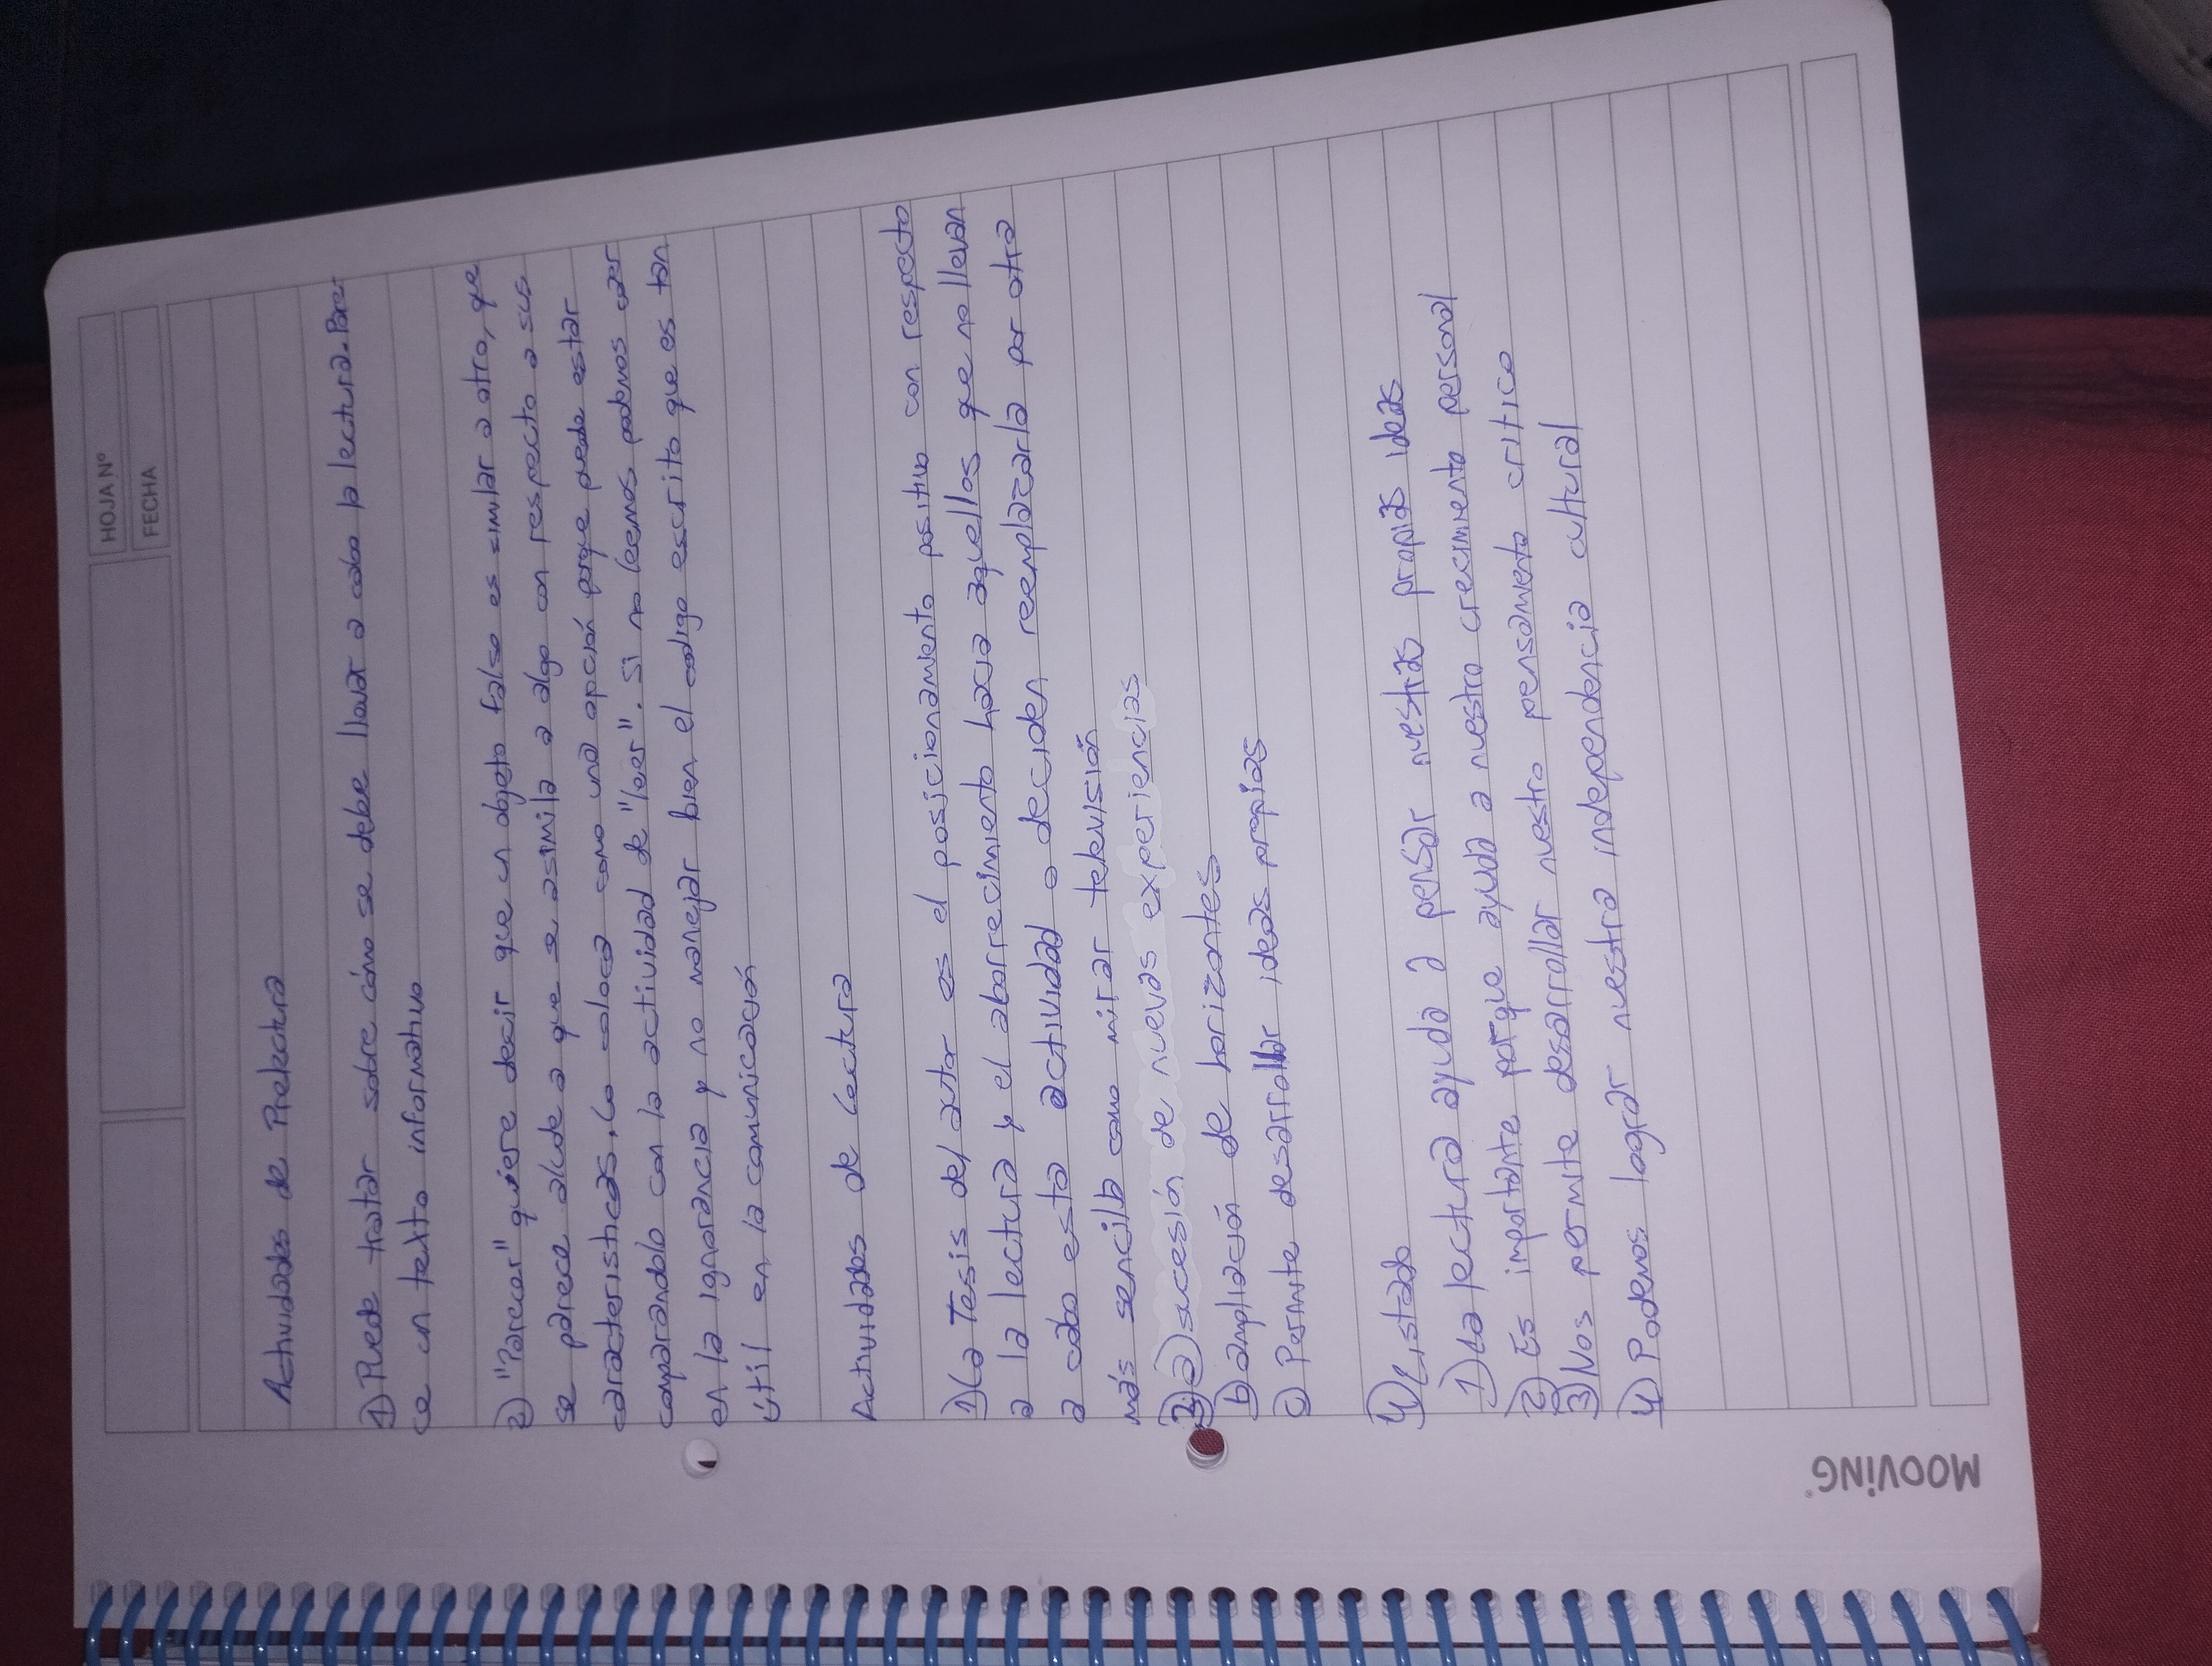 HOJA Nº
FECHA
Actividades de Prelectura
1) Puede tratar sobre cómo se debe llevar a cabo la lectura. Pare-
ce un texto informativo
2) "Parecer" quiere decir que un objeto falso es similar a otro, que
se parece alude a que se asimila a algo con respecto a sus
caracteristicas. Lo coloca como una opción porque puede estar
comparandolo con la actividad de "leer". Si no leemos podemos caer
en la ignorancia y no manejar bien el codigo escrito que es tan
útil en la comunicación
Actividades de lectura
1) La Tesis del autor es el posicionamiento positivo con respecto
a la lectura y el aborrecimiento hacia aquellos que no llevan
a cabo esta actividad o deciden reemplazarla por otra
más sencilla como mirar televisión
2) a) sucesión de nuevas experiencias
b) ampliación de horizontes
c) Permite desarrollar ideas propias
4) Listado
1) La lectura ayuda a pensar nuestras propias ideas
2) Es importante porque ayuda a nuestro crecimiento personal
3) Nos permite desarrollar nuestro pensamiento critico
4) Podemos lograr nuestra independencia cultural
MOOVING